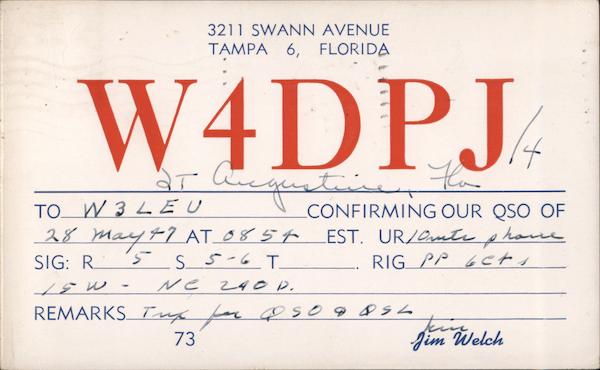 3211 SWANN AVENUE
TAMPA 6, FLORIDA
W4DPJ/4
ST Augustine, Fla
TO W3LEU CONFIRMING OUR QSO OF
28 May 47 AT 0854 EST. UR 10 mtr phone
SIG: R 5 S 5-6 T . RIG PP 6C4s
15W - NC 240D.
REMARKS Tnx for QSO & QSL
73 Jim
Jim Welch